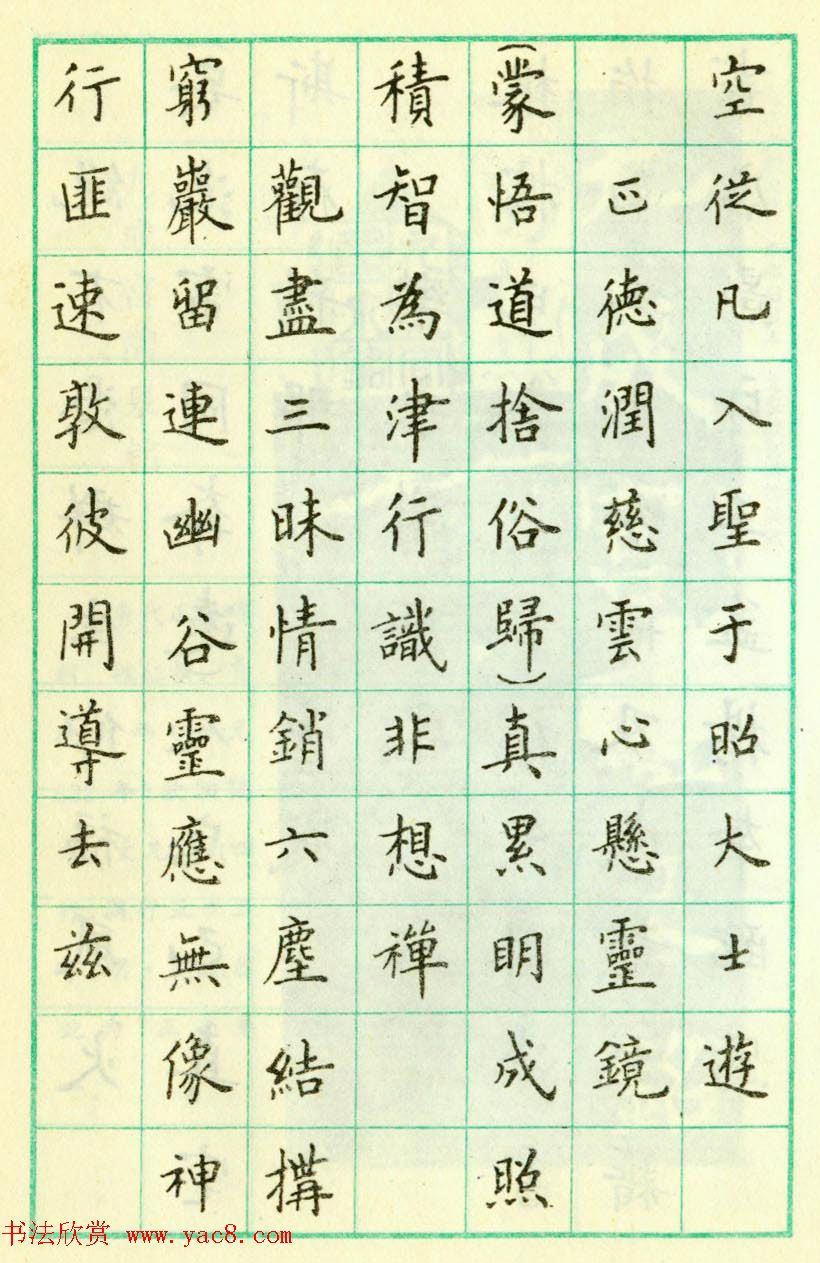 空從凡入聖于昭大士遊
正德潤慈雲心懸靈鏡
(蒙悟道捨俗歸)真累明成照
積智為津行識非想禪
觀盡三昧情銷六塵結構
窮巖留連幽谷靈應無像神
行匪速敦彼開導去茲
书法欣赏 www.yac8.com